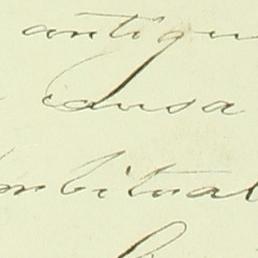 antigu
causa
ombitual